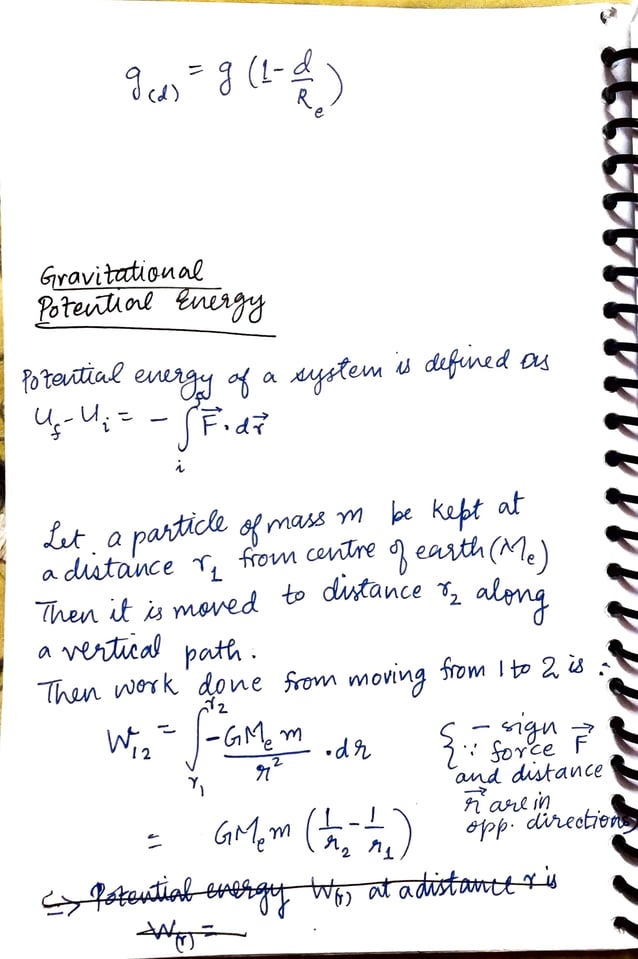 g(d) = g (1 - d/Re)
Gravitational
Potential Energy
Potential energy of a system is defined as
Uf - Ui = - ∫ᵢᶠ F⃗ . dr⃗
Let a particle of mass m be kept at
a distance r₁ from centre of earth (Me)
Then it is moved to distance r₂ along
a vertical path.
Then work done from moving from 1 to 2 is :-
W₁₂ = ∫ from r₁ to r₂ -GMem/r² . dr { - sign
∵ force F⃗
and distance
r⃗ are in
opp. directions
= GMem (1/r₂ - 1/r₁)
=> Potential energy W(r) at a distance r is
W(r) =